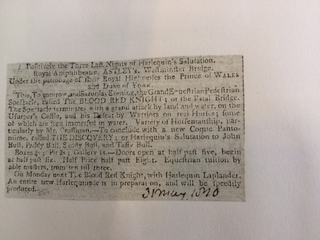 Positively the Three Last Nights of Harlequin's Salutation.
Royal Amphitheatre, ASTLEY's, Westminster Bridge.
Under the patronage of their Royal Highnesses the Prince of WALES
and DUKE of YORK.
This, To-morrow and Saturday Evening, the Grand Equestrian Pedestrian
Spectacle, called The BLOOD RED KNIGHT; or the Fatal Bridge.
The Spectacle terminates with a grand attack by land and water, on the
Usurper's Castle, and his Defeat by Warriors on real Horses; some
of which are seen immersed in water. Variety of Horsemanship, Par-
ticularly by Mr.
To conclude with a new Comic Panto-
mime, called THE DISCOVERY; or Harlequin's Salutation to John
Bull, Paddy Bull, Sandy Bull, and Taffy Bull.
Doors open at half past five, begin
at half past six. Half Price half past Eight. Equestrian tuition by
able masters, from ten till three.
On Monday next The Blood Red Knight, with Harlequin Laplander.
An entire new Harlequinade is in preparation, and will be speedily
produced.
31 May 1810